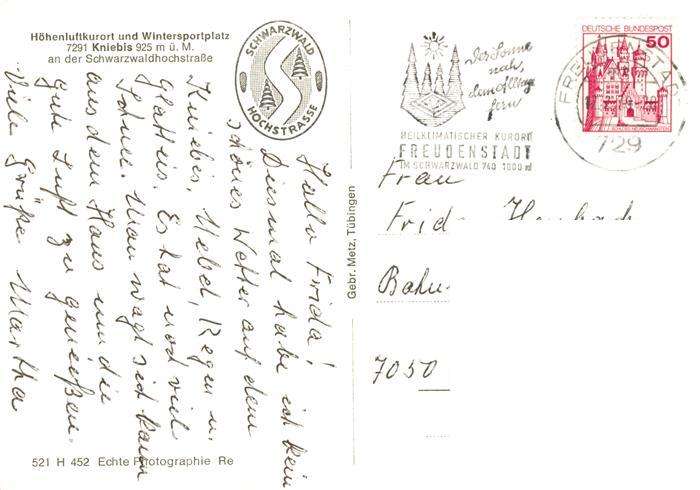 Höhenluftkurort und Wintersportplatz
7291 Kniebis 925 m ü. M.
an der Schwarzwaldhochstraße
SCHWARZWALD
HOCHSTRASSE
Hallo Frida!
Diesmal habe ich kein
schönes Wetter auf dem
Kniebis, Nebel, Regen u.
Glatteis. Es hat noch viel
Schnee. Man wagt sich kaum
aus dem Haus um die
gute Luft zu genießen.
Viele Grüße Martha
521 H 452 Echte Photographie Re
Gebr. Metz, Tübingen
Der Sonne
nah,
dem Alltag
fern
HEILKLIMATISCHER KURORT
FREUDENSTADT
IM SCHWARZWALD 740 1000 m
FREUDENSTADT
729
DEUTSCHE BUNDESPOST
50
Frau
Frid
Bahn
7050